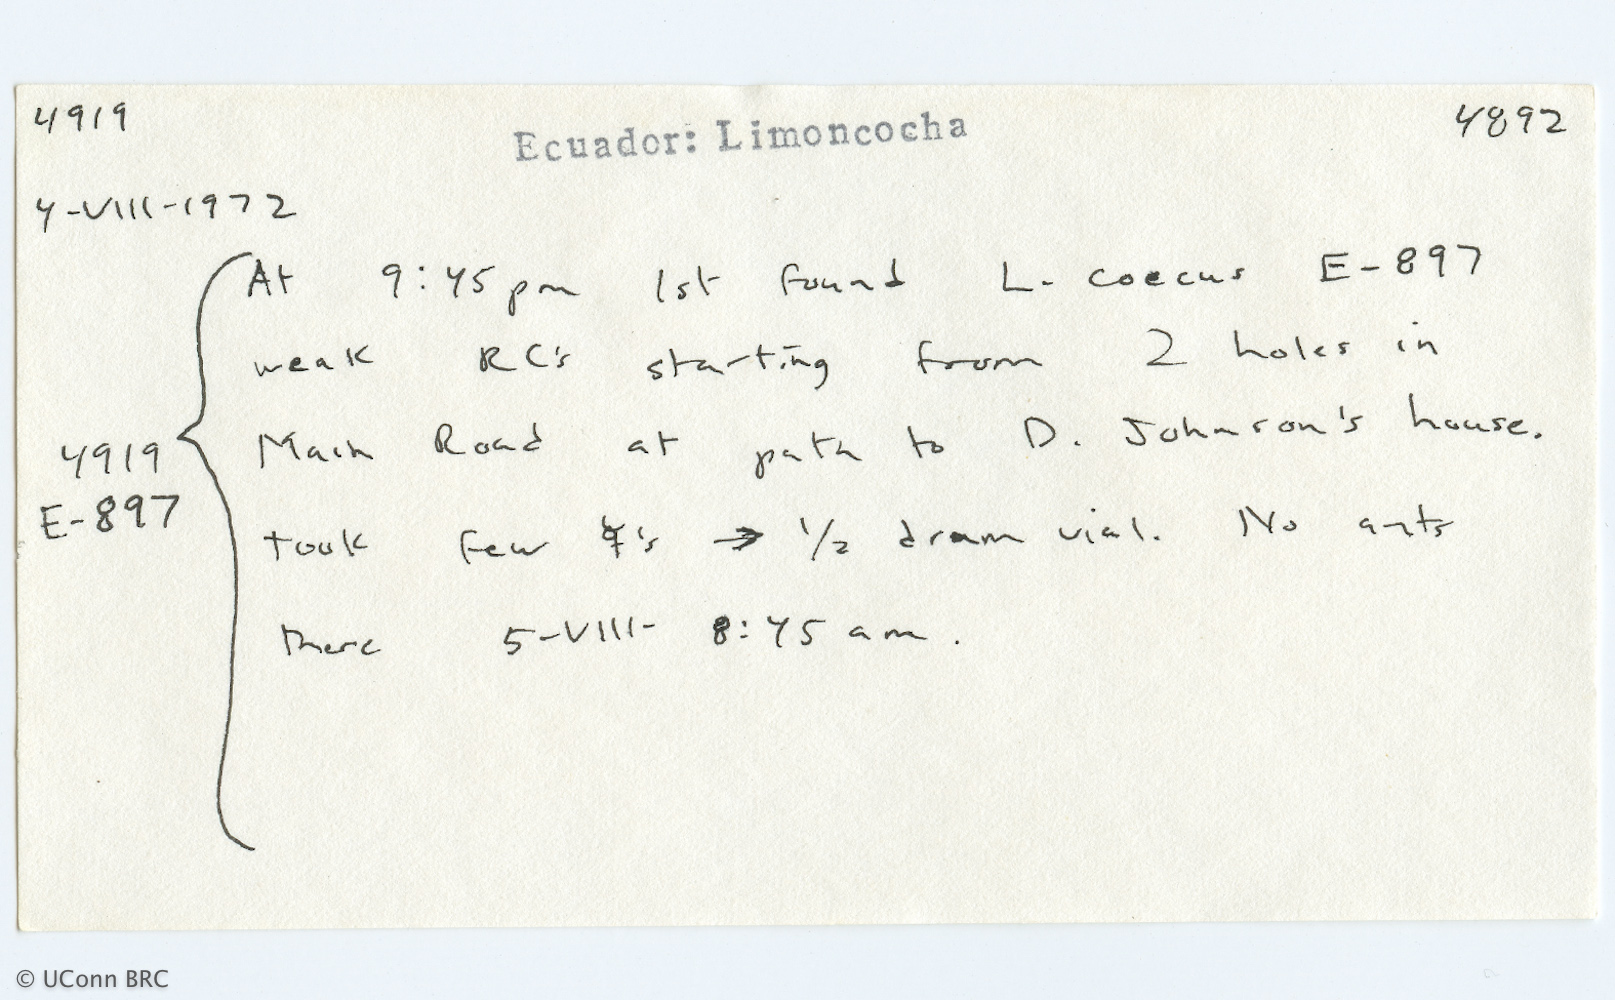 4919
Ecuador: Limoncocha
4892
4-VIII-1972
At 9:45pm 1st found L. coecus E-897
weak RC's starting from 2 holes in
Main Road at path to D. Johnson's house.
4919
E-897
took few ☿'s → 1/2 dram vial. No ants
there 5-VIII- 8:45 am.
© UConn BRC